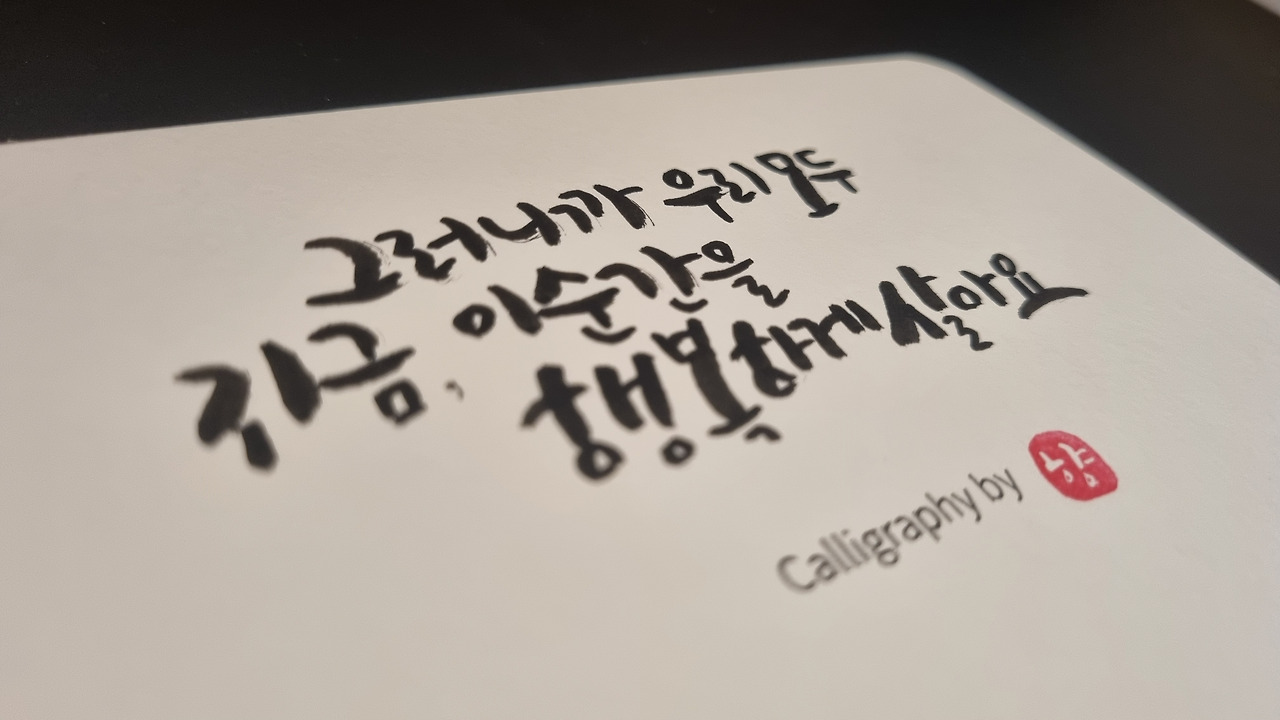 그러니까 우리 모두
지금, 이 순간을
행복하게 살아요
Calligraphy by